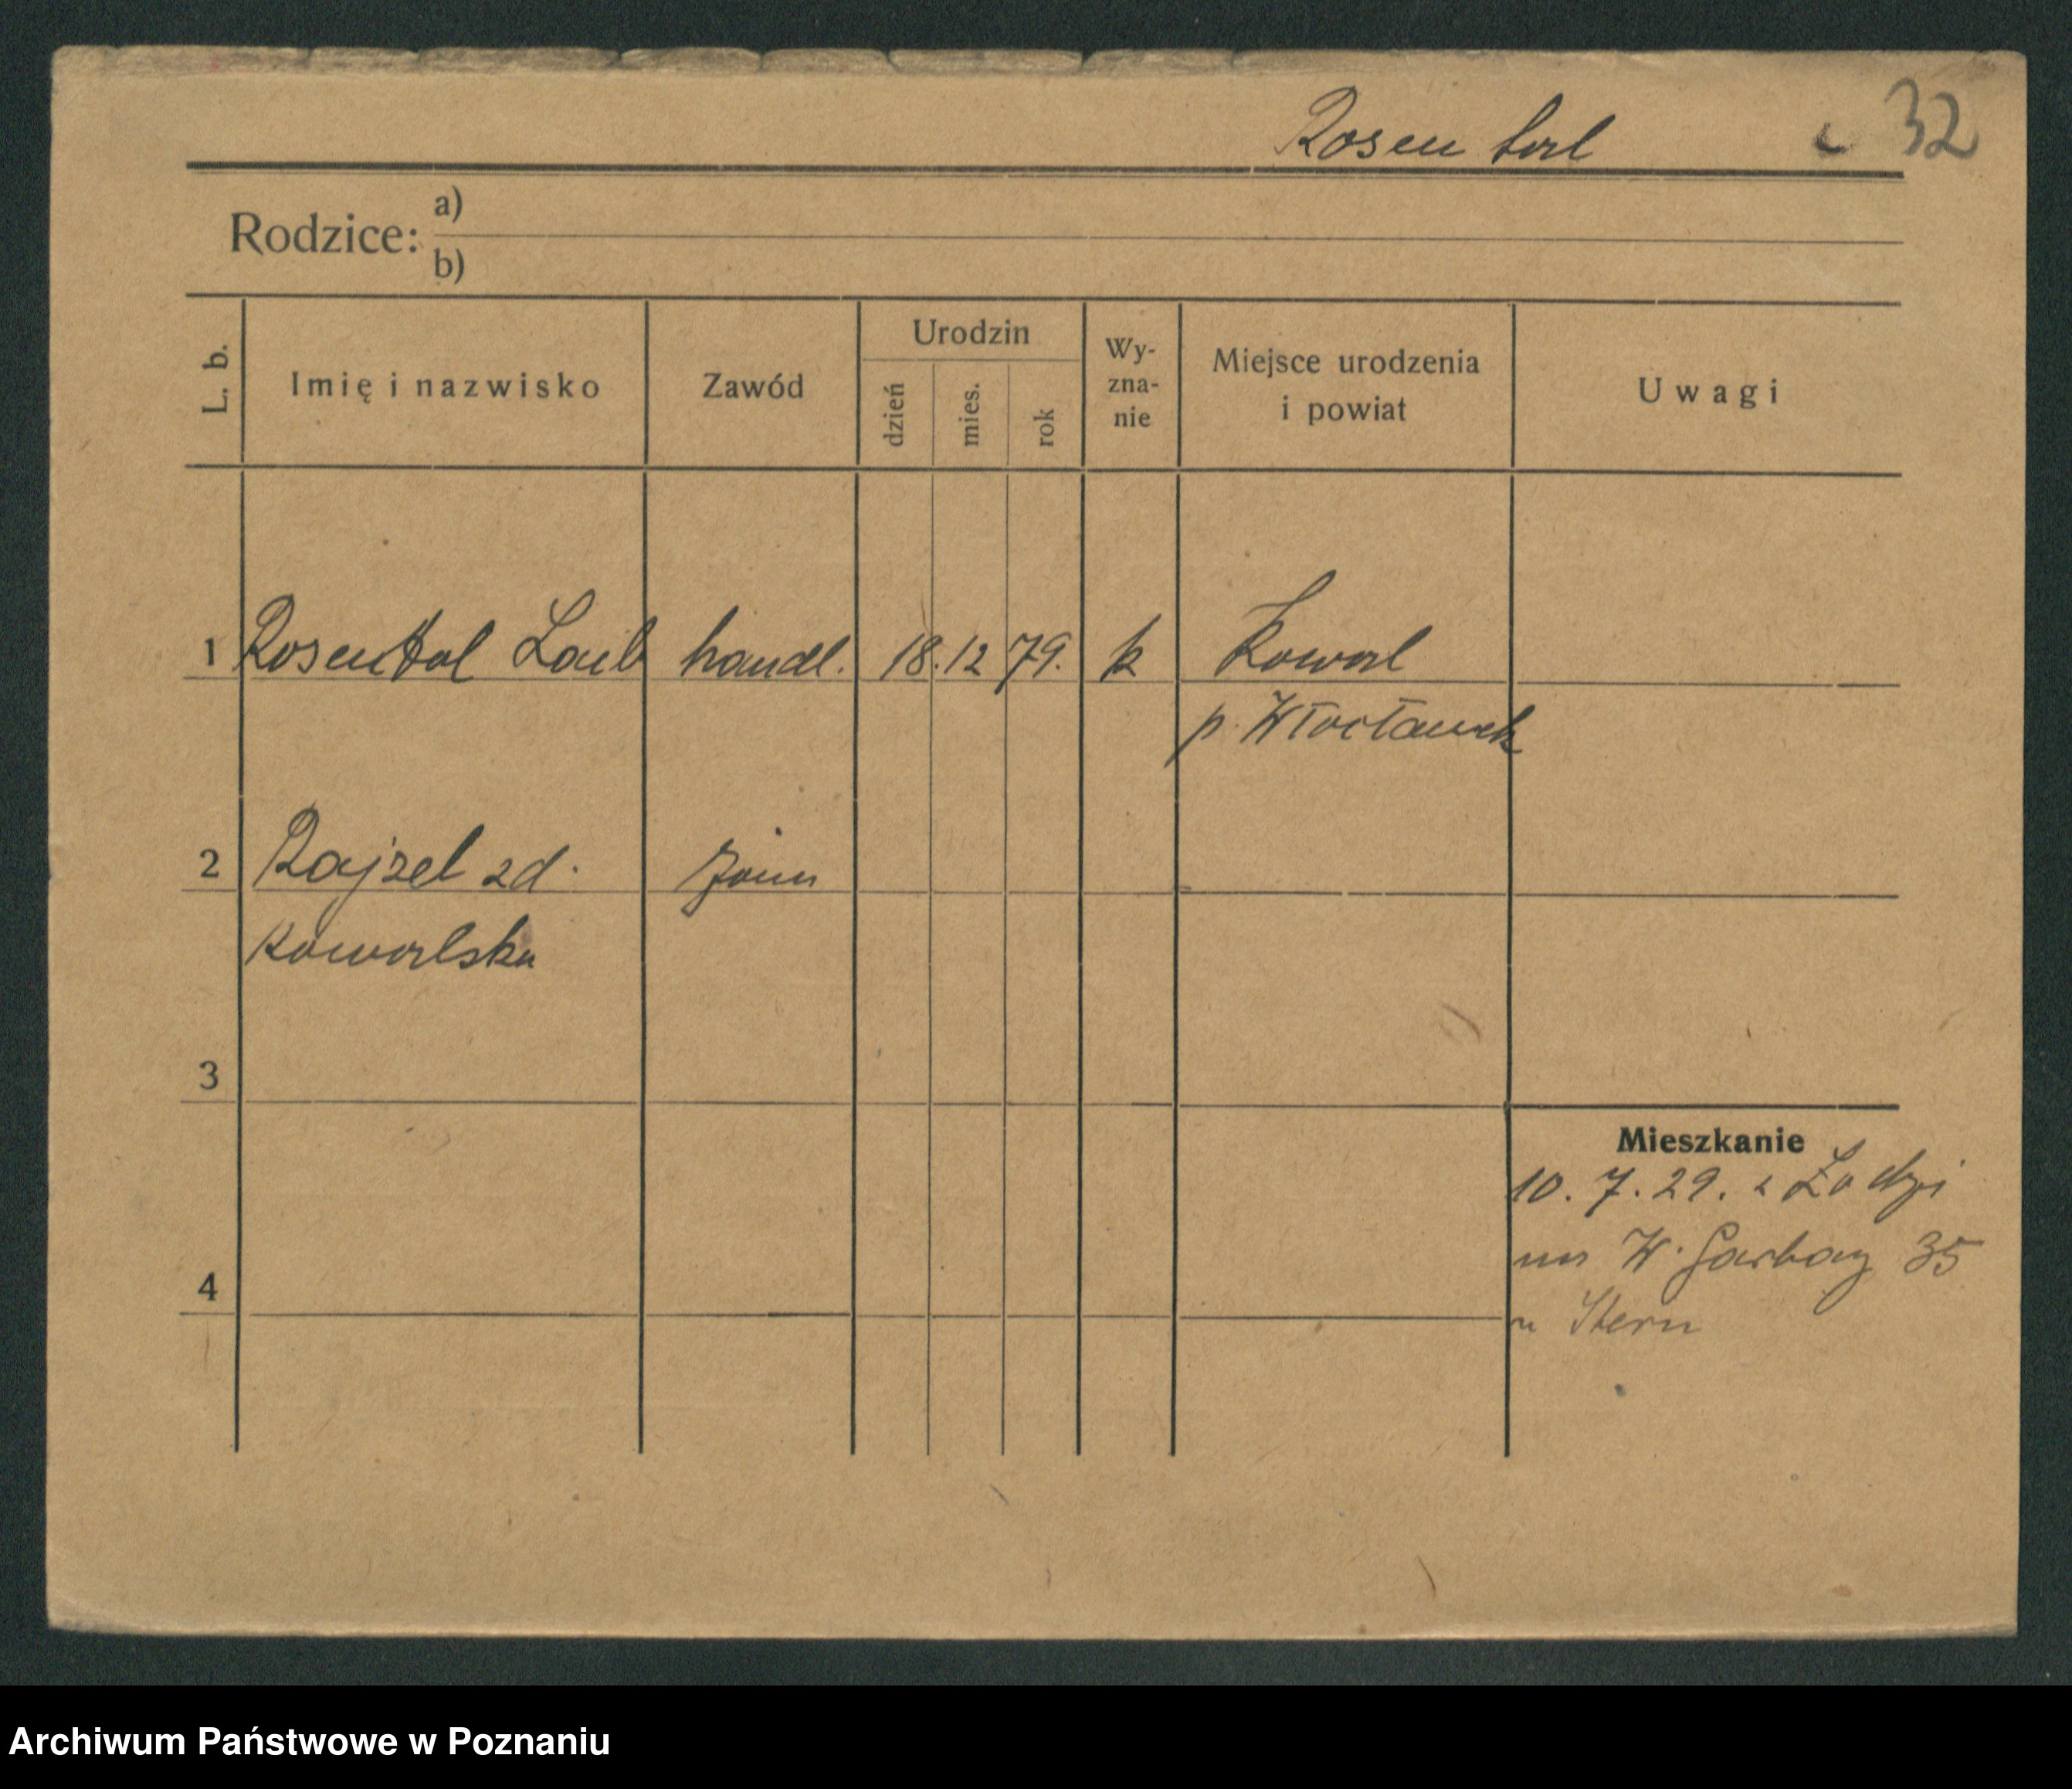 Rosental 32
Rodzice: a)
b)
L. b. Imię i nazwisko Zawód Urodzin dzień mies. rok Wy-zna-nie Miejsce urodzenia i powiat Uwagi
1 Rosental Laib handl. 18. 12 79. k Kowal
p. Włocławek
2 Rajzel zd. żona
Kowalska
3
Mieszkanie
10. 7. 29. z Łodzi
na W. Garbary 35
4
u Stern
Archiwum Państwowe w Poznaniu